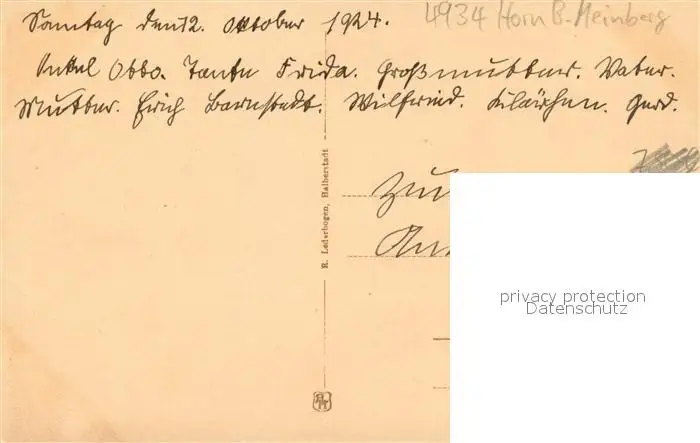 Sonntag den 12. Oktober 1924.
4934 Horn B. Meinberg
Onkel Otto. Tante Frida. Großmutter. Vater.
Mutter. Erich Barnstedt. Wilfried. Klärchen. Gerd.
R. Lederbogen, Halberstadt
Zur
privacy protection
Datenschutz